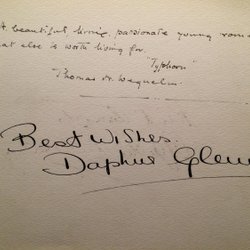 beautiful living, passionate young
at else is worth living for.
"Typhoon"
Thomas H.
Best Wishes
Daphne Glenn